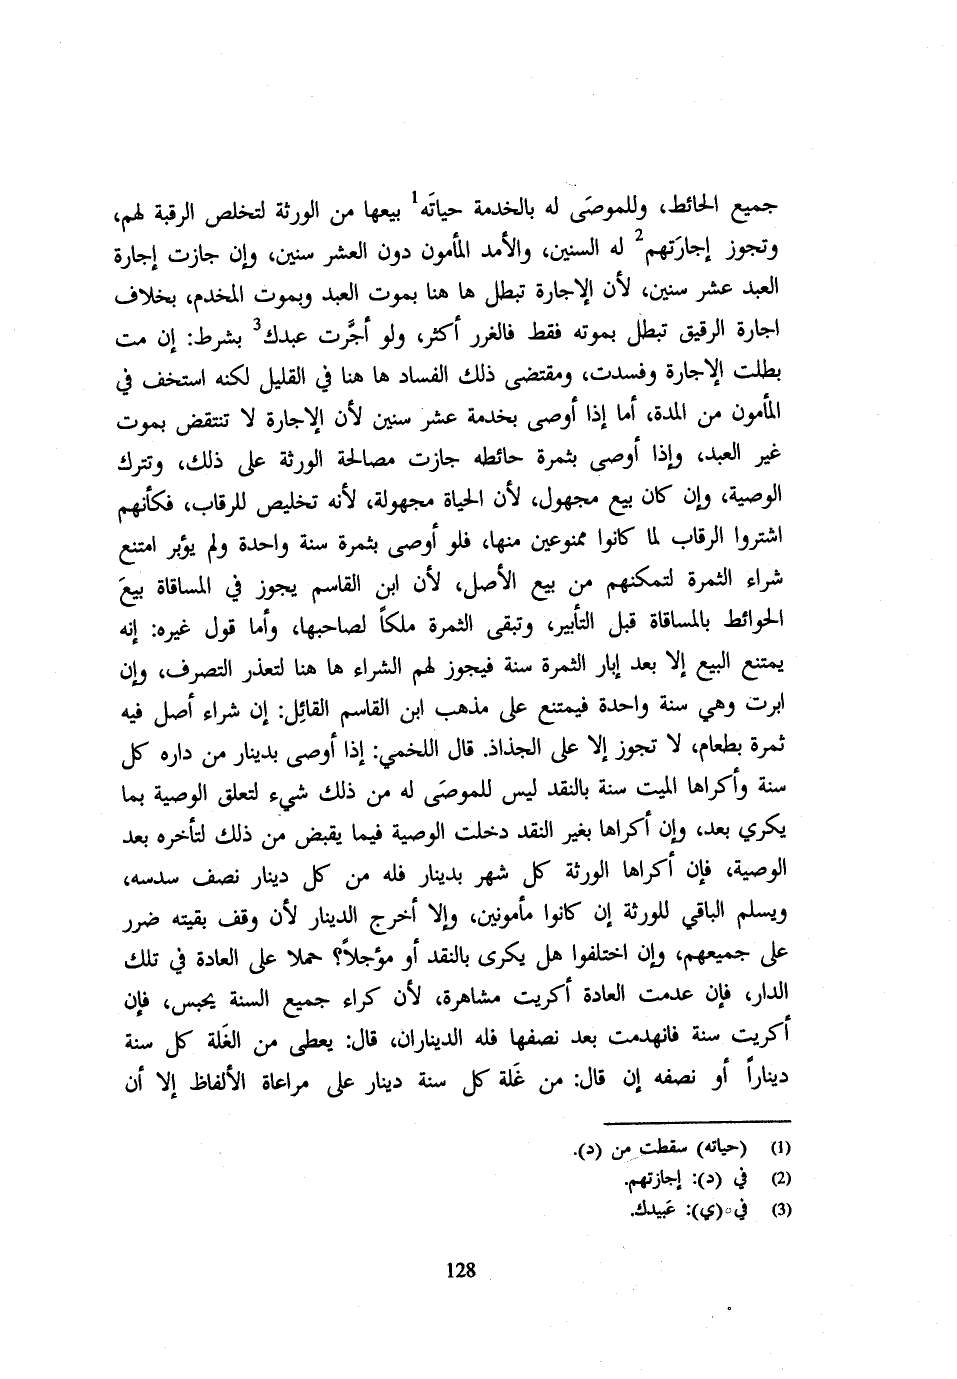 جميع الحائط، وللموصَى له بالخدمة حياتَه1 بيعها من الورثة لتخلص الرقبة لهم،
وتجوز إجارَتهم2 له السنين، والأمد المأمون دون العشر سنين، وإن جازت إجارة
العبد عشر سنين، لأن الإجارة تبطل ها هنا بموت العبد وبموت المخدم، بخلاف
اجارة الرقيق تبطل بموته فقط فالغرر أكثر، ولو أجَّرت عبدك3 بشرط: إن مت
بطلت الإجارة وفسدت، ومقتضى ذلك الفساد ها هنا في القليل لكنه استخف في
المأمون من المدة، أما إذا أوصى بخدمة عشر سنين لأن الإجارة لا تنتقض بموت
غير العبد، وإذا أوصى بثمرة حائطه جازت مصالحة الورثة على ذلك، وتترك
الوصية، وإن كان بيع مجهول، لأن الحياة مجهولة، لأنه تخليص للرقاب، فكأنهم
اشتروا الرقاب لما كانوا ممنوعين منها، فلو أوصى بثمرة سنة واحدة ولم يؤبر امتنع
شراء الثمرة لتمكنهم من بيع الأصل، لأن ابن القاسم يجوز في المساقاة بيعَ
الحوائط بالمساقاة قبل التأبير، وتبقى الثمرة ملكاً لصاحبها، وأما قول غيره: إنه
يمتنع البيع إلا بعد إبار الثمرة سنة فيجوز لهم الشراء ها هنا لتعذر التصرف، وإن
ابرت وهي سنة واحدة فيمتنع على مذهب ابن القاسم القائِل: إن شراء أصل فيه
ثمرة بطعام، لا تجوز إلا على الجذاذ. قال اللخمي: إذا أوصى بدينار من داره كل
سنة وأكراها الميت سنة بالنقد ليس للموصَى له من ذلك شيء لتعلق الوصية بما
يكري بعد، وإن أكراها بغير النقد دخلت الوصية فيما يقبض من ذلك لتأخره بعد
الوصية، فإن أكراها الورثة كل شهر بدينار فله من كل دينار نصف سدسه،
ويسلم الباقي للورثة إن كانوا مأمونين، وإلا أخرج الدينار لأن وقف بقيته ضرر
على جميعهم، وإن اختلفوا هل يكرى بالنقد أو مؤجلاً؟ حملا على العادة في تلك
الدار، فإن عدمت العادة أكريت مشاهرة، لأن كراء جميع السنة يحبس، فإن
أكريت سنة فانهدمت بعد نصفها فله الديناران، قال: يعطى من الغَلة كل سنة
ديناراً أو نصفه إن قال: من غَلة كل سنة دينار على مراعاة الألفاظ إلا أن
(1) (حياته) سقطت من (د).
(2) في (د): إجازتهم.
(3) في (ي): عَبيدك.
128